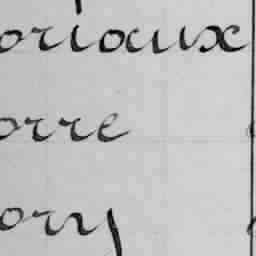 oriaux
orre
ory